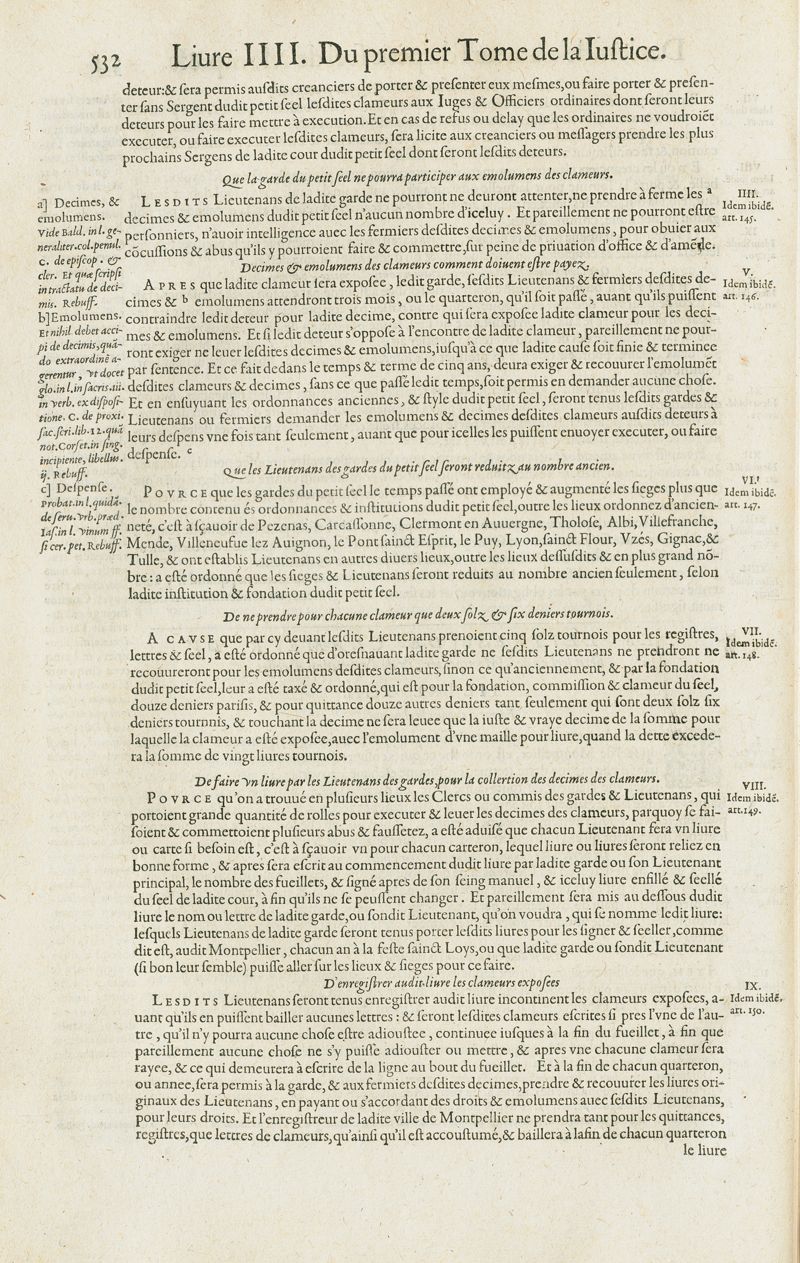 532 Liure IIII. Du premier Tome de la Iuſtice.
deteur:& ſera permis auſdits creanciers de porter & preſenter eux meſmes,ou faire porter & preſen-
ter ſans Sergent dudit petit ſeel leſdites clameurs aux Iuges & Officiers ordinaires dont ſeront leurs
deteurs pour les faire mettre à execution.Et en cas de refus ou delay que les ordinaires ne voudroiẽt
executer, ou faire executer leſdites clameurs, ſera licite aux creanciers ou meſſagers prendre les plus
prochains Sergens de ladite cour dudit petit ſeel dont ſeront leſdits deteurs.
Que la garde du petit ſeel ne pourra participer aux emolumens des clameurs.
LESDITS Lieutenans de ladite garde ne pourront ne deuront attenter,ne prendre à ferme les a
decimes & emolumens dudit petit ſeel n'aucun nombre d'iceluy . Et pareillement ne pourront eſtre
perſonniers, n'auoir intelligence auec les fermiers deſdites decimes & emolumens , pour obuier aux
cõcuſſions & abus qu'ils y pourroient faire & commettre,ſur peine de priuation d'office & d'amẽde.
Decimes & emolumens des clameurs comment doiuent eſtre payez.
APRES que ladite clameur ſera expoſee , ledit garde, ſeſdits Lieutenans & fermiers deſdites de-
cimes & b emolumens attendront trois mois , ou le quarteron, qu'il ſoit paſſé , auant qu'ils puiſſent
contraindre ledit deteur pour ladite decime, contre qui ſera expoſee ladite clameur pour les deci-
mes & emolumens. Et ſi ledit deteur s'oppoſe à l'encontre de ladite clameur , pareillement ne pour-
ront exiger ne leuer leſdites decimes & emolumens,iuſqu'à ce que ladite cauſe ſoit finie & terminee
par ſentence. Et ce fait dedans le temps & terme de cinq ans, deura exiger & recouurer l'emolumẽt
deſdites clameurs & decimes , ſans ce que paſſé ledit temps,ſoit permis en demander aucune choſe.
Et en enſuyuant les ordonnances anciennes , & ſtyle dudit petit ſeel , ſeront tenus leſdits gardes &
Lieutenans ou fermiers demander les emolumens & decimes deſdites clameurs auſdits deteurs à
leurs deſpens vne fois tant ſeulement , auant que pour icelles les puiſſent enuoyer executer, ou faire
deſpenſe. c
Que les Lieutenans des gardes du petit ſeel ſeront reduitz au nombre ancien.
POVRCE que les gardes du petit ſeel le temps paſſé ont employé & augmenté les ſieges plus que
le nombre contenu és ordonnances & inſtitutions dudit petit ſeel,outre les lieux ordonnez d'ancien-
neté, c'eſt à ſçauoir de Pezenas, Carcaſſonne, Clermont en Auuergne, Tholoſe, Albi, Villefranche,
Mende, Villeneufue lez Auignon, le Pont ſainct Eſprit, le Puy, Lyon,ſainct Flour, Vzés, Gignac,&
Tulle, & ont eſtablis Lieutenans en autres diuers lieux,outre les lieux deſſuſdits & en plus grand nõ-
bre : a eſté ordonné que les ſieges & Lieutenans ſeront reduits au nombre ancien ſeulement , ſelon
ladite inſtitution & fondation dudit petit ſeel.
De ne prendre pour chacune clameur que deux ſolz & ſix deniers tournois.
A CAVSE que par cy deuant leſdits Lieutenans prenoient cinq ſolz tournois pour les regiſtres,
lettres & ſeel , a eſté ordonné que d'oreſnauant ladite garde ne ſeſdits Lieutenans ne prendront ne
recouureront pour les emolumens deſdites clameurs, ſinon ce qu'anciennement, & par la fondation
dudit petit ſeel,leur a eſté taxé & ordonné,qui eſt pour la fondation, commiſſion & clameur du ſeel,
douze deniers pariſis, & pour quittance douze autres deniers tant ſeulement qui ſont deux ſolz ſix
deniers tournnis, & touchant la decime ne ſera leuee que la iuſte & vraye decime de la ſomme pour
laquelle la clameur a eſté expoſee,auec l'emolument d'vne maille pour liure,quand la dette excede-
ra la ſomme de vingt liures tournois.
De faire vn liure par les Lieutenans des gardes,pour la collertion des decimes des clameurs.
POVRCE qu'on a trouué en pluſieurs lieux les Clercs ou commis des gardes & Lieutenans , qui
portoient grande quantité de rolles pour executer & leuer les decimes des clameurs, parquoy ſe fai-
ſoient & commettoient pluſieurs abus & fauſſetez, a eſté aduiſé que chacun Lieutenant fera vn liure
ou carte ſi beſoin eſt , c'eſt à ſçauoir vn pour chacun carteron, lequel liure ou liures ſeront reliez en
bonne forme , & apres ſera eſcrit au commencement dudit liure par ladite garde ou ſon Lieutenant
principal, le nombre des fueillets, & ſigné apres de ſon ſeing manuel , & iceluy liure enfillé & ſeellé
du ſeel de ladite cour, à fin qu'ils ne ſe peuſſent changer . Et pareillement ſera mis au deſſous dudit
liure le nom ou lettre de ladite garde,ou ſondit Lieutenant, qu'on voudra , qui ſe nomme ledit liure:
leſquels Lieutenans de ladite garde ſeront tenus porter leſdits liures pour les ſigner & ſeeller ,comme
dit eſt, audit Montpellier , chacun an à la feſte ſainct Loys,ou que ladite garde ou ſondit Lieutenant
(ſi bon leur ſemble) puiſſe aller ſur les lieux & ſieges pour ce faire.
D'enregiſtrer audit liure les clameurs expoſees
LESDITS Lieutenans ſeront tenus enregiſtrer audit liure incontinent les clameurs expoſees, a-
uant qu'ils en puiſſent bailler aucunes lettres : & ſeront leſdites clameurs eſcrites ſi pres l'vne de l'au-
tre , qu'il n'y pourra aucune choſe eſtre adiouſtee , continuee iuſques à la fin du fueillet , à fin que
pareillement aucune choſe ne s'y puiſſe adiouſter ou mettre , & apres vne chacune clameur ſera
rayee, & ce qui demeurera à eſcrire de la ligne au bout du fueillet. Et à la fin de chacun quarteron,
ou annee,ſera permis à la garde, & aux fermiers deſdites decimes,prendre & recouurer les liures ori-
ginaux des Lieutenans , en payant ou s'accordant des droits & emolumens auec ſeſdits Lieutenans,
pour leurs droits. Et l'enregiſtreur de ladite ville de Montpellier ne prendra tant pour les quittances,
regiſtres,que lettres de clameurs,qu'ainſi qu'il eſt accouſtumé,& baillera à la fin de chacun quarteron
le liure
a] Decimes, &
emolumens.
Vide Bald. in l. ge-
neraliter.col.penul.
C. de epiſcop. &
cler. Et quæ ſcripſi
in tractatu de deci-
mis. Rebuff.
b] Emolumens.
Et nihil debet acci-
pi de decimis,quã-
do extraordinè a-
gerentur , vt docet
glo.in l.in ſacris.iii.
in verb. ex diſpoſi-
tione. C. de proxi.
ſac.ſcri.lib.12.quã
not.Corſet.in ſing.
incipiente, libellus.
ij. Rebuff.
c] Deſpenſe.
Probat.in l.quidã.
de ſeru.vrb.præd.
Iaſ.in l. vinum ff.
ſi cer.pet.Rebuff.
IIII.
Idem ibidẽ.
art. 145.
V.
Idem ibidẽ.
art. 146.
VI.
Idem ibidẽ.
art. 147.
VII.
Idem ibidẽ.
art. 148.
VIII.
Idem ibidẽ.
art.149.
IX.
Idem ibidẽ.
art. 150.